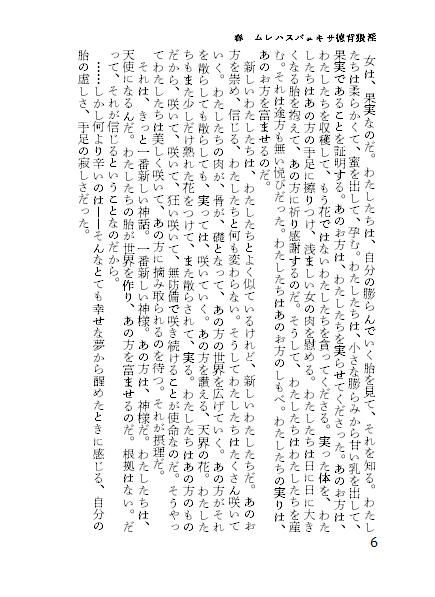 淫猥背徳サキュバスハレム　春
女は、果実なのだ。わたしたちは、自分の膨らんでいく胎を見て、それを知る。わたし
たちは柔らかくて、蜜を出して、孕む。わたしたちは、小さな膨らみから甘い乳を出して、
果実であることを証明する。あのお方は、わたしたちを実らせてくださった。あのお方は、
わたしたちを収穫して、もう花ではないわたしたちを貪ってくださる。実った体を、わた
したちはあの方の手足に擦りつけ、浅ましい女の肉を慰める。わたしたちは日に日に大き
くなる胎を抱えて、あの方に祈り感謝するのだ。そうして、わたしたちはわたしたちを産
む。それは途方も無い悦びだった。わたしたちはあのお方のしもべ。わたしたちの実りは、
あのお方を富ませるのだ。
新しいわたしたちは、わたしたちとよく似ているけれど、新しいわたしたちだ。あのお
方を崇め、信じる、わたしたちと何も変わらない。そうしてわたしたちはたくさん咲いて
いく。わたしたちの肉が、骨が、礎となって、あの方の世界を広げていく。あの方がそれ
を散らしても散らしても、実っては、咲いていく。あの方を讃える、天界の花。わたした
ちもまた少しだけ熟れた花をつけて、また散らされて、実る。わたしたちはあの方のもの
だから、咲いて、咲いて、狂い咲いて、無防備で咲き続けることが使命なのだ。そうやっ
てわたしたちは美しく咲いて、あの方に摘み取られるのを待つ。それが摂理だ。
それは、きっと一番新しい神話。一番新しい神様。あの方は、神様だ。わたしたちは、
天使になるんだ。わたしたちの胎が世界を作り、あの方を富ませるのだ。根拠はない。だ
って、それが信じるということなのだから。
……しかし何より辛いのは――そんなとても幸せな夢から醒めたときに感じる、自分の
胎の虚しさ、手足の寂しさだった。
6